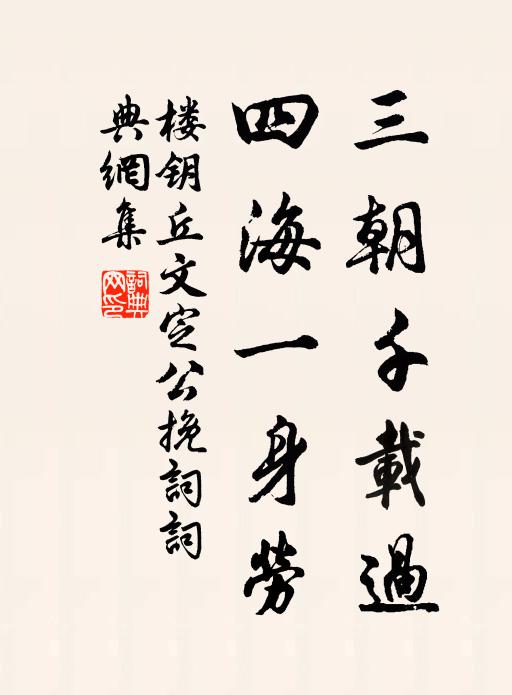 三朝千載遇
四海一身勞
楼钥丘文定公挽詞詞
典網集
詞典
网印